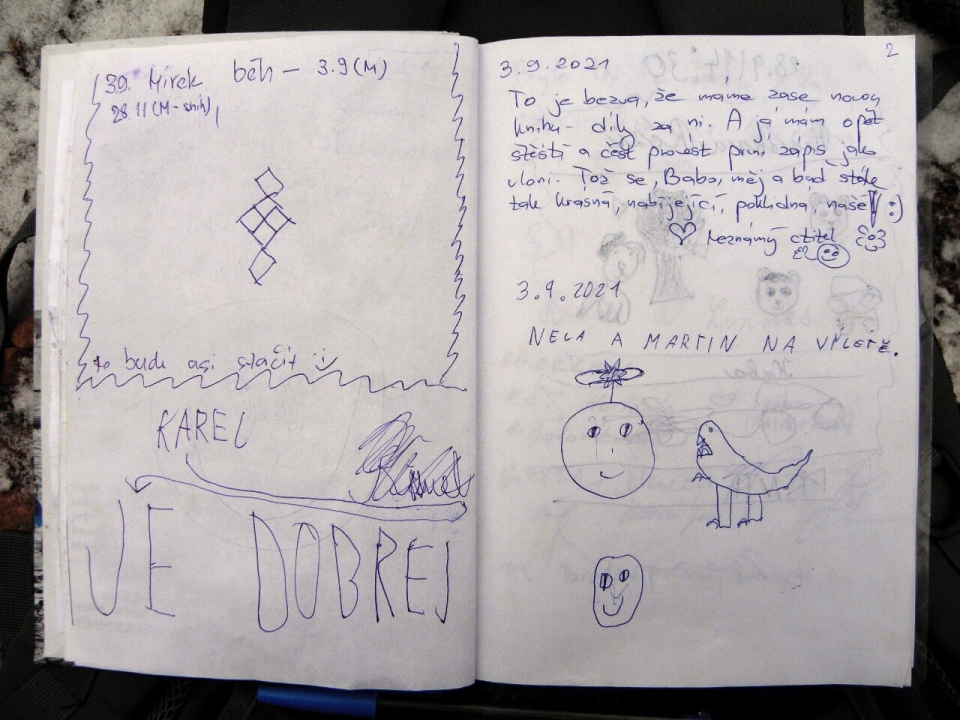 3.9. Mirek běh - 3.9 (M)
28.11 (M-sníh)
to bude asi stačit :)
KAREL
JE DOBREJ
2
3.9.2021
To je bezva, že máme zase novou
knihu - díky za ni. A já mám opět
štěstí a čest provést první zápis jako
vloni. Tož se, Babo, měj a buď stále
tak krásná, nabíjející, poklidná, naše! :)
♡ Neznámý ctitel
3.9.2021
NELA A MARTIN NA VÝLETĚ.